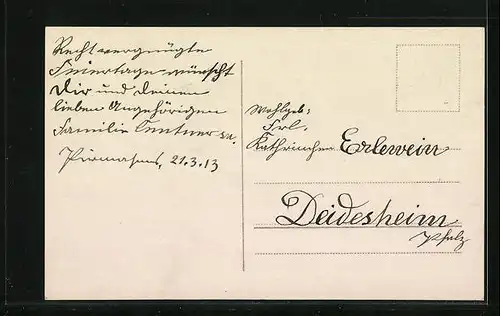 Recht vergnügte
Feiertage wünscht
Dir und Deinen
lieben Angehörigen
Familie Centner sen.
Pirmasens, 21.3.13
Wohlgeb:
Frl.
Kathrinchen Erlewein
Deidesheim
Pfalz